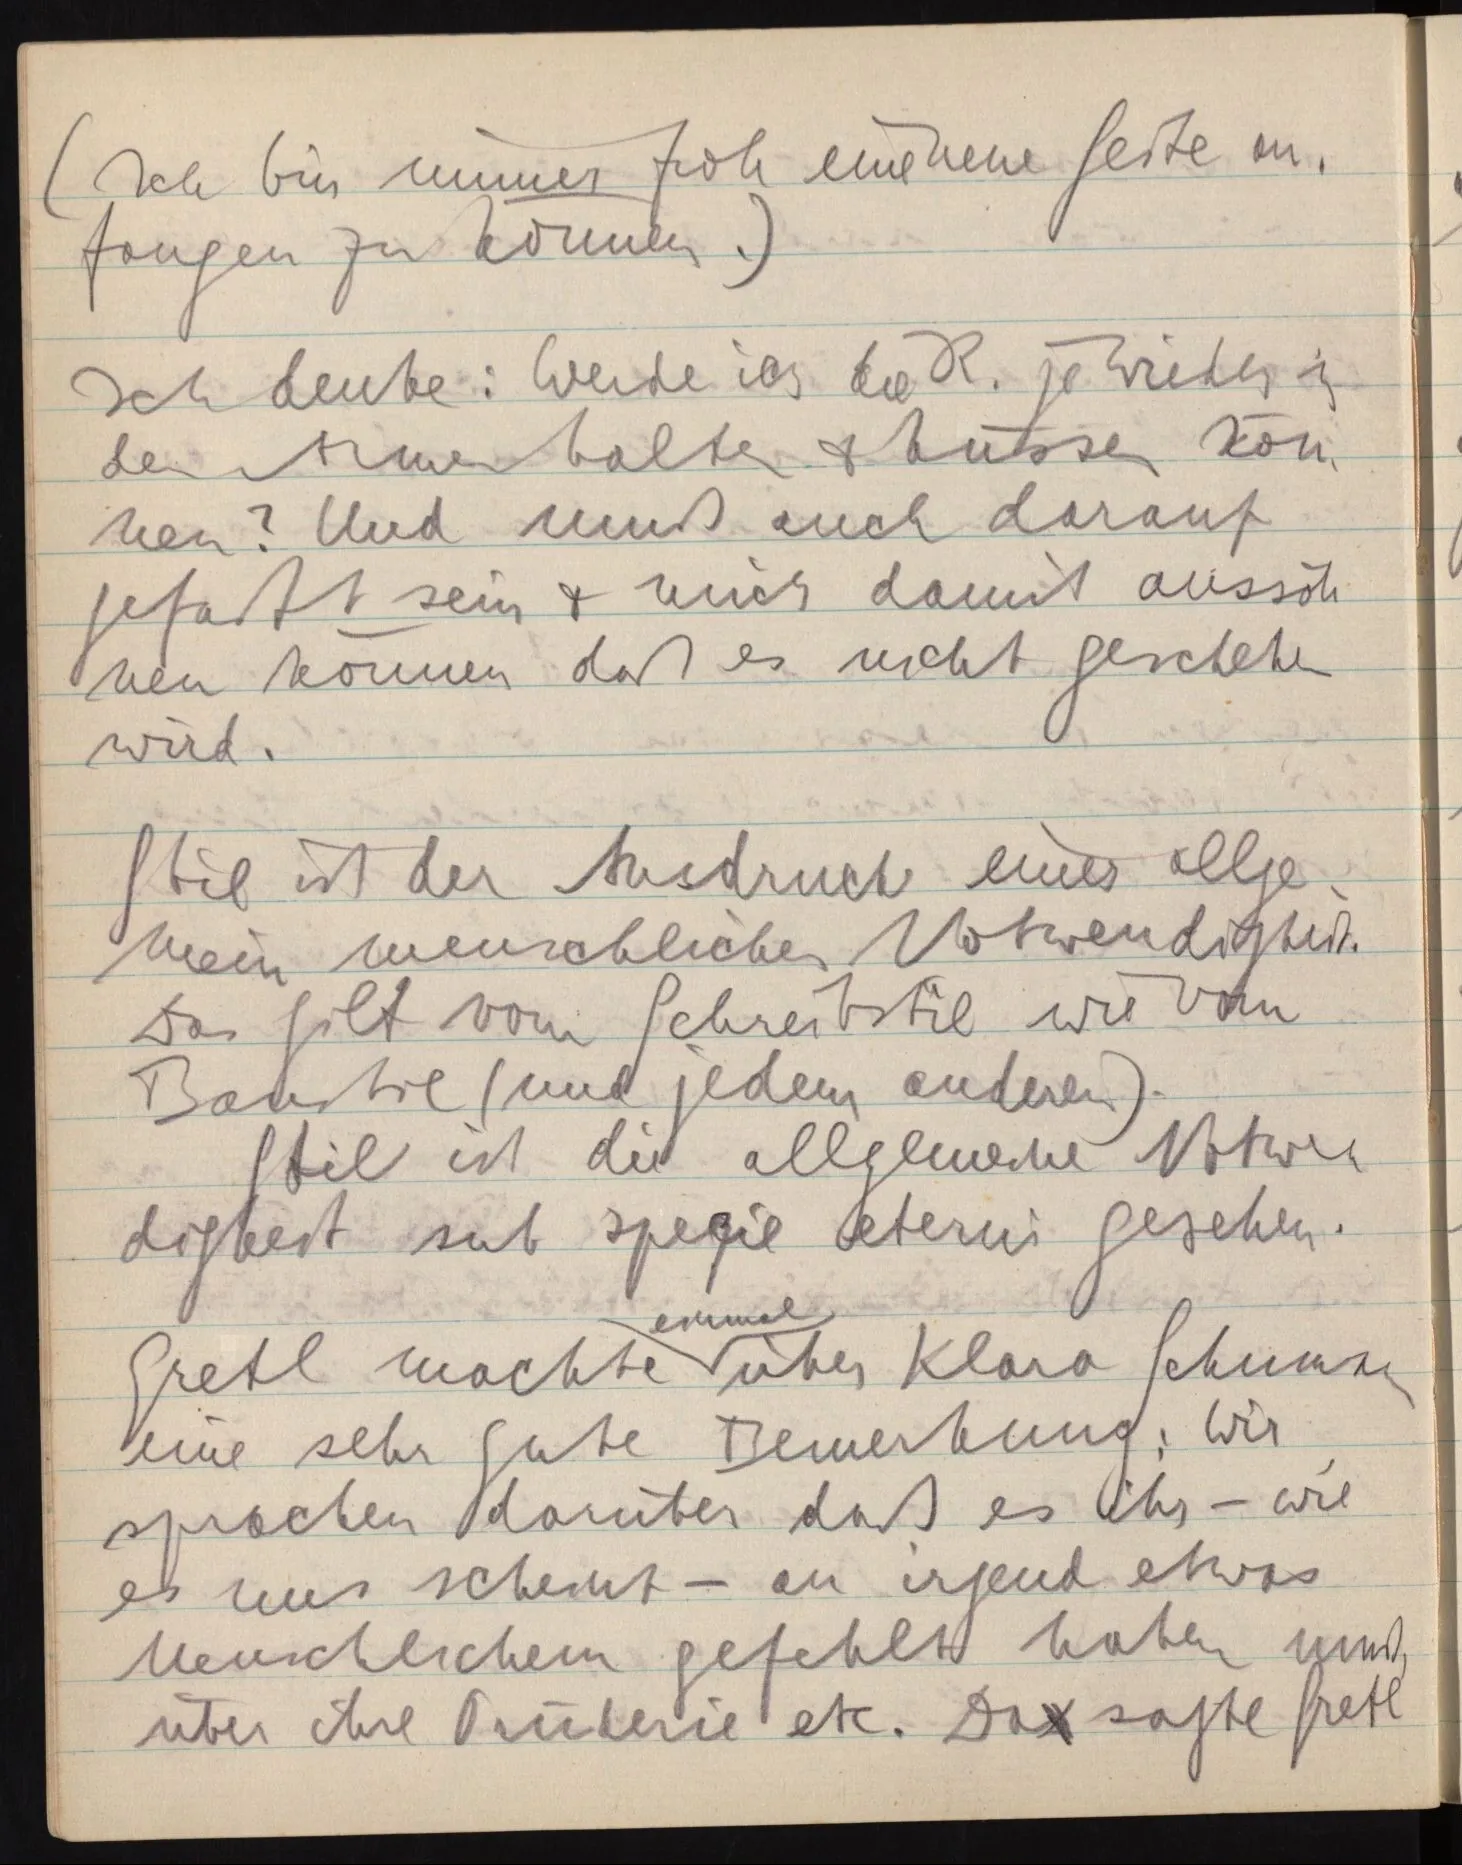 (Ich bin immer froh eine neue Seite an-
fangen zu können.)
Ich denke: Werde ich die R. je wieder in
den Armen halten & küssen kön-
nen? Und muß auch darauf
gefaßt sein & mich damit aussöh
nen können daß es nicht geschehen
wird.
Stil ist der Ausdruck einer allge-
mein menschlichen Notwendigkeit.
Das gilt vom Schreibstil wie vom
Baustil (und jedem anderen).
Stil ist die allgemeine Notwen
digkeit sub specie eterni gesehen.
Gretl machte einmal über Klara Schumann
eine sehr gute Bemerkung; Wir
sprachen darüber daß es ihr – wie
es uns scheint – an irgend etwas
Menschlichem gefehlt haben muß,
über ihre Prüderie etc. Da sagte Gretl